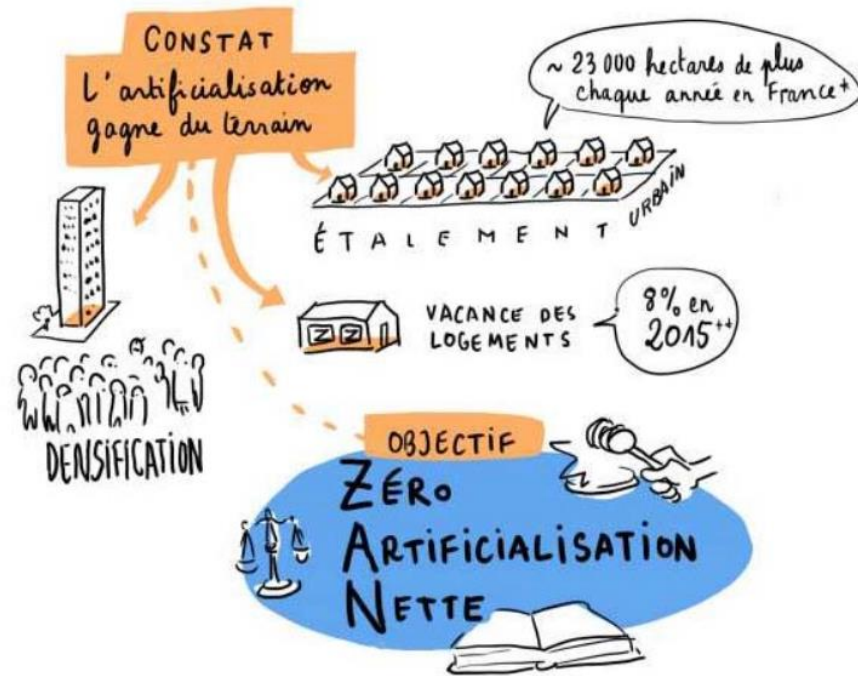 CONSTAT
L'artificialisation
gagne du terrain
~ 23 000 hectares de plus
chaque année en France*
ÉTALEMENT URBAIN
VACANCE DES
LOGEMENTS
8% en
2015**
DENSIFICATION
OBJECTIF
ZÉRO
ARTIFICIALISATION
NETTE